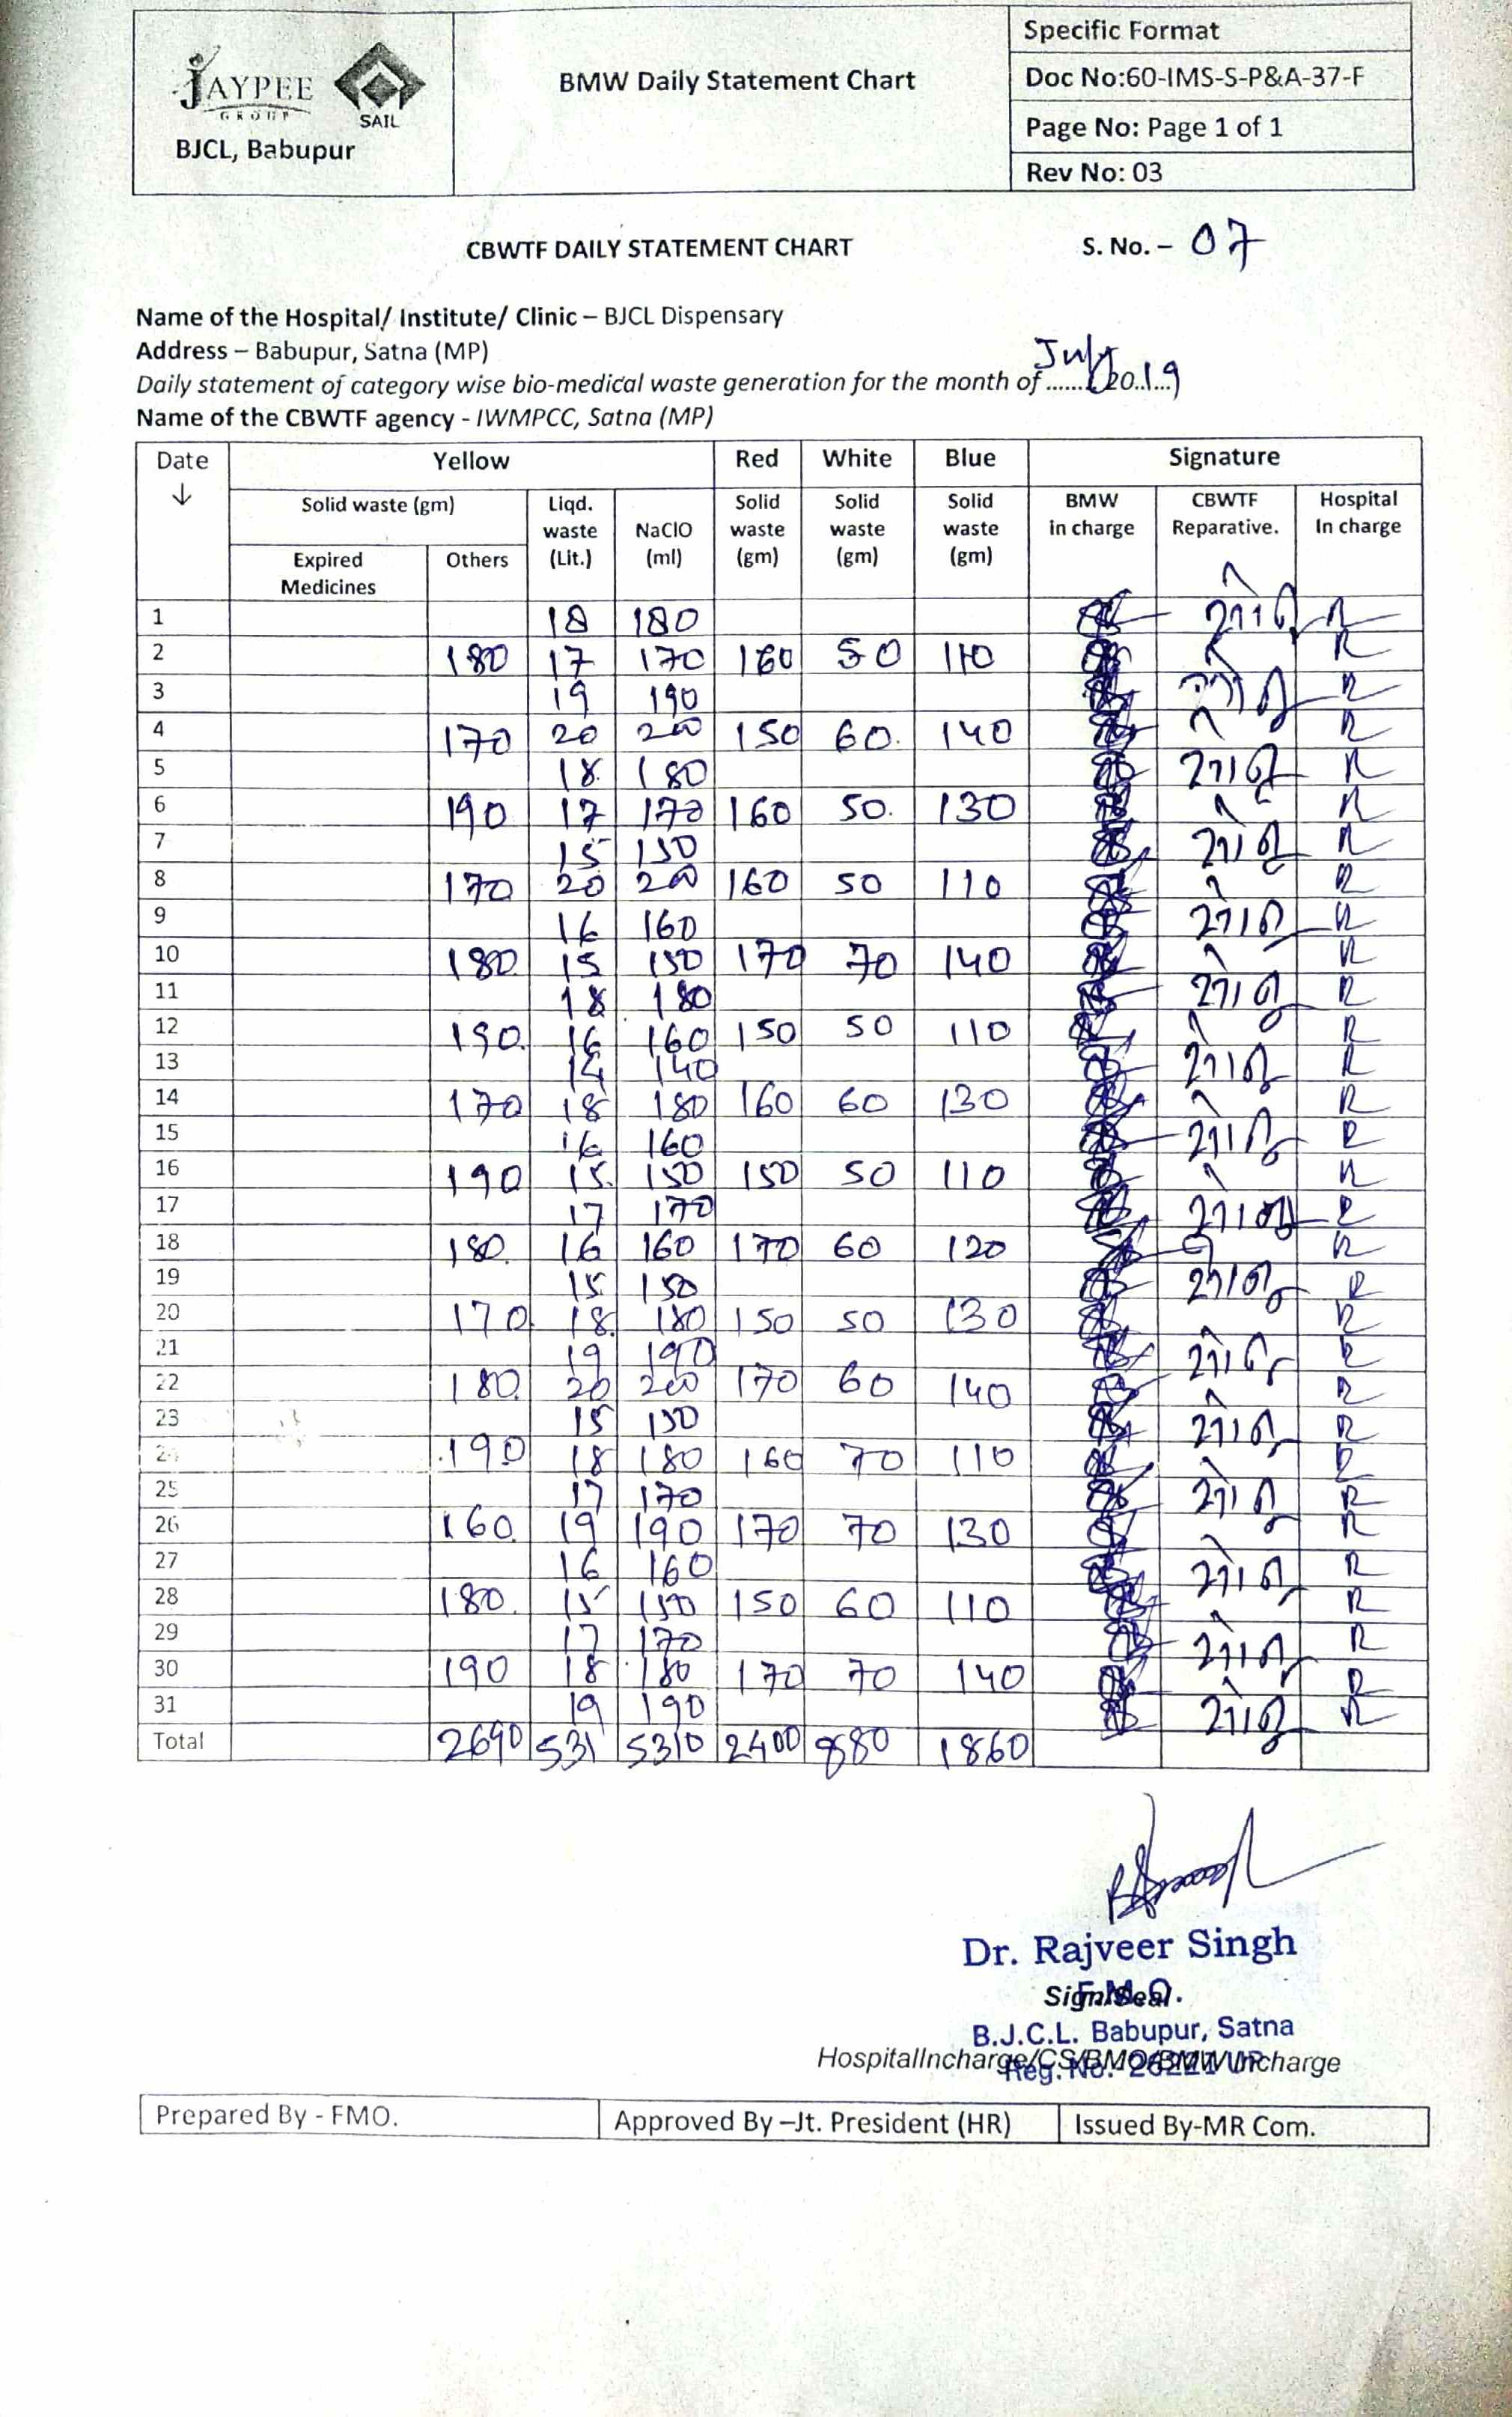 JAYPEE
GROUP
SAIL
BJCL, Babupur
BMW Daily Statement Chart
Specific Format
Doc No:60-IMS-S-P&A-37-F
Page No: Page 1 of 1
Rev No: 03
CBWTF DAILY STATEMENT CHART
S. No. – 07
Name of the Hospital/ Institute/ Clinic – BJCL Dispensary
Address – Babupur, Satna (MP)
Daily statement of category wise bio-medical waste generation for the month of ...July... 2019
Name of the CBWTF agency - IWMPCC, Satna (MP)
Date ↓ Yellow Red White Blue Signature
Solid waste (gm) Liqd. waste (Lit.) NaClO (ml) Solid waste (gm) Solid waste (gm) Solid waste (gm) BMW in charge CBWTF Reparative. Hospital In charge
Expired Medicines Others
1 18 180
2 180 17 170 160 50 110
3 19 190
4 170 20 200 150 60. 140
5 18. 180
6 190 17 170 160 50. 130
7 15 150
8 170 20 200 160 50 110
9 16 160
10 180 15 150 170 70 140
11 18 180
12 190. 16 160 150 50 110
13 14 140
14 170 18 180 160 60 130
15 16 160
16 190 15. 150 150 50 110
17 17 170
18 180. 16 160 170 60 120
19 15. 150
20 170. 18. 180 150 50 130
21 19 190
22 180. 20 200 170 60 140
23 15 150
24 190 18 180 160 70 110
25 17 170
26 160. 19 190 170 70 130
27 16 160
28 180. 15 150 150 60 110
29 17 170
30 190 18 180 170 70 140
31 19 190
Total 2690 531 5310 2400 880 1860
Dr. Rajveer Singh
Sign/Seal
F.M.O.
B.J.C.L. Babupur, Satna
HospitalIncharge/CS/BMO/BMW Incharge
Reg. No.
Prepared By - FMO.
Approved By –Jt. President (HR)
Issued By-MR Com.